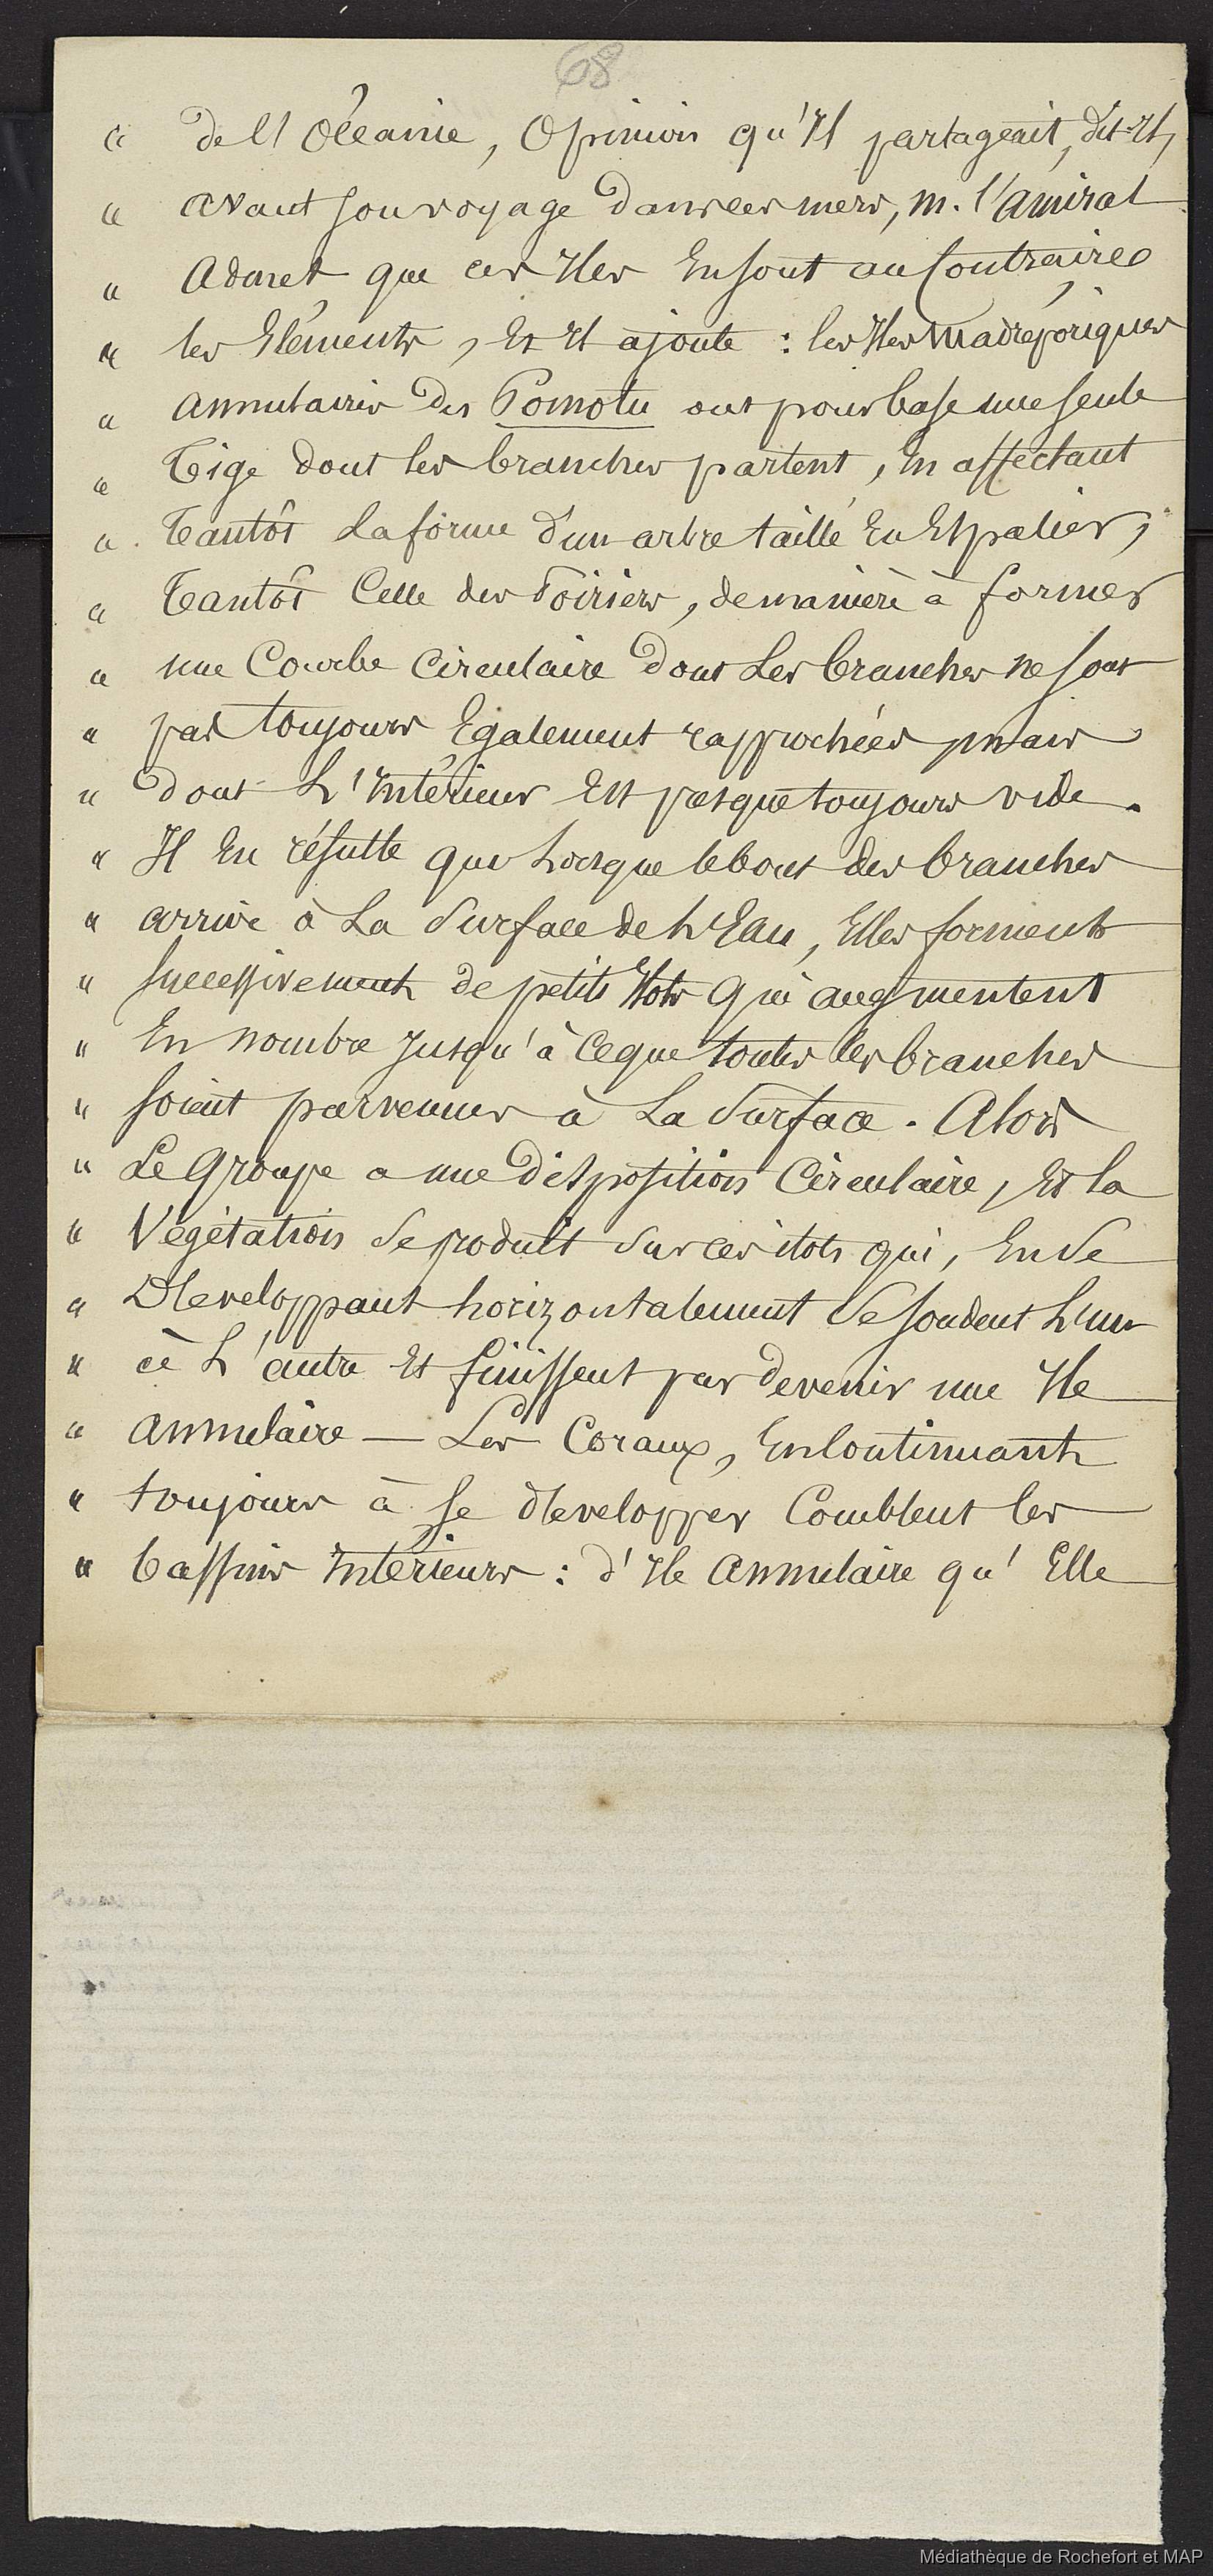 68
" de l'Océanie, Opinion qu'Il partageait, dit-Il,
" avant son voyage dans ces mers, m. l'amiral
" admet que ces Iles En sont au Contraire
" les Eléments, Et Il ajoute : les Iles Madréporiques
" annulaires des Pomotu ont pour base une seule
" Tige dont les branches partent, En affectant
" Tantôt La forme d'un arbre taillé En Espalier,
" Tantôt Celle des Poiriers, de manière à former
" une Courbe Circulaire dont Les branches ne sont
" pas toujours Egalement rapprochées mais
" dont L'Intérieur Est presque toujours vide.
" Il En résulte que Lorsque le bout des branches
" arrive à La Surface de L'Eau, Elles forment
" successivement de petits Ilots Qui augmentent
" En nombre Jusqu'à Ce que toutes les branches
" soient parvenues à La Surface. Alors
" Le Groupe a une disposition Circulaire, Et la
" Végétation Se produit Sur ces ilots qui, En Se
" Développant horizontalement Se soudent L'un
" à L'autre Et finissent par devenir une Ile
" Annulaire — Les Coraux, En Continuant
" toujours à se développer Comblent les
" bassins Intérieurs : d'Ile Annulaire qu'Elle
Médiathèque de Rochefort et MAP